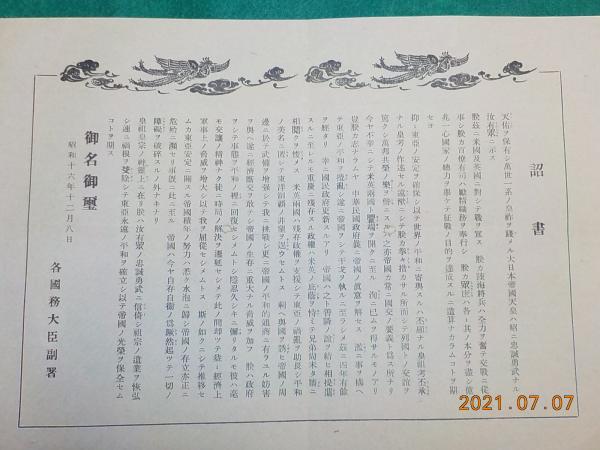 詔書
天佑ヲ保有シ萬世一系ノ皇祚ヲ踐メル大日本帝國天皇ハ昭ニ忠誠勇武ナル
汝有眾ニ示ス
朕茲ニ米國及英國ニ對シテ戰ヲ宣ス 朕カ陸海將兵ハ全力ヲ奮テ交戰ニ從
事シ朕カ百僚有司ハ勵精職務ヲ奉行シ 朕カ眾庶ハ各〻其ノ本分ヲ盡シ億
兆一心國家ノ總力ヲ擧ケテ征戰ノ目的ヲ達成スルニ遺算ナカラムコトヲ期
セヨ
抑〻東亞ノ安定ヲ確保シ以テ世界ノ平和ニ寄與スルハ丕顯ナル 皇祖考丕承
ナル 皇考ノ作述セル遠猷ニシテ朕カ拳々措カサル所而シテ列國トノ交誼ヲ
篤クシ萬邦共榮ノ樂ヲ偕ニスルハ之亦帝國カ常ニ國交ノ要義ト爲ス所ナリ
今ヤ不幸ニシテ米英兩國ト釁端ヲ開クニ至ル 洵ニ已ムヲ得サルモノアリ
豈朕カ志ナラムヤ 中華民國政府曩ニ帝國ノ眞意ヲ解セス 濫ニ事ヲ構ヘ
テ東亞ノ平和ヲ攪亂シ遂ニ帝國ヲシテ干戈ヲ執ルニ至ラシメ茲ニ四年有餘
ヲ經タリ 幸ニ國民政府更新スルアリ 帝國ハ之ト善隣ノ誼ヲ結ヒ相提攜
スルニ至レルモ重慶ニ殘存スル政權ハ米英ノ庇蔭ヲ恃ミテ兄弟尙未タ牆ニ
相鬩クヲ悛メス 米英兩國ハ殘存政權ヲ支援シテ東亞ノ禍亂ヲ助長シ平和
ノ美名ニ匿レテ東洋制覇ノ非望ヲ逞ウセムトス 剩ヘ與國ヲ誘ヒ帝國ノ周
邊ニ於テ武備ヲ增强シテ我ニ挑戰シ更ニ帝國ノ平和的通商ニ有ラユル妨害
ヲ與ヘ遂ニ經濟斷交ヲ敢テシ帝國ノ生存ニ重大ナル脅威ヲ加フ 朕ハ政府
ヲシテ事態ヲ平和ノ裡ニ回復セシメムトシ隱忍久シキニ彌リタルモ彼ハ毫
モ交讓ノ精神ナク徒ニ時局ノ解決ヲ遷延セシメテ此ノ間却ツテ益〻經濟上
軍事上ノ脅威ヲ增大シ以テ我ヲ屈從セシメムトス 斯ノ如クニシテ推移セ
ムカ東亞安定ニ關スル帝國積年ノ努力ハ悉ク水泡ニ歸シ帝國ノ存立亦正ニ
危殆ニ瀕セリ事既ニ此ニ至ル 帝國ハ今ヤ自存自衞ノ爲蹶然起ツテ一切ノ
障礙ヲ破碎スルノ外ナキナリ
皇祖皇宗ノ神靈上ニ在リ朕ハ汝有眾ノ忠誠勇武ニ信倚シ祖宗ノ遺業ヲ恢弘
シ速ニ禍根ヲ芟除シテ東亞永遠ノ平和ヲ確立シ以テ帝國ノ光榮ヲ保全セム
コトヲ期ス
御名御璽
昭和十六年十二月八日
各國務大臣副署
2021.07.07